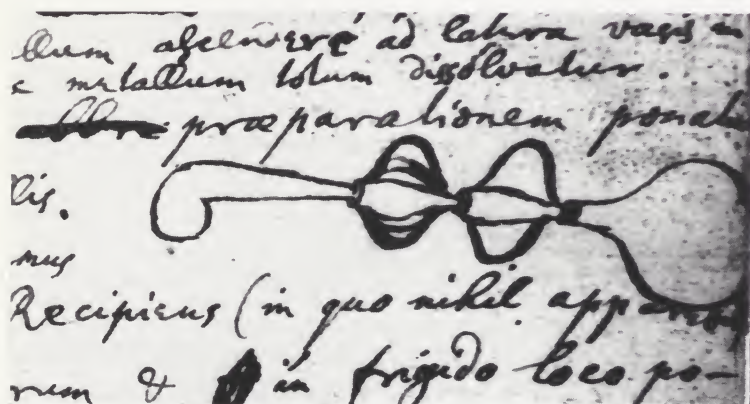 llum ascendere ad latera vasis
metallum totum dissolvatur.
præparationem ponat
lis.
mus
Recipiens (in quo nihil appar
rum & in frigido loco po-